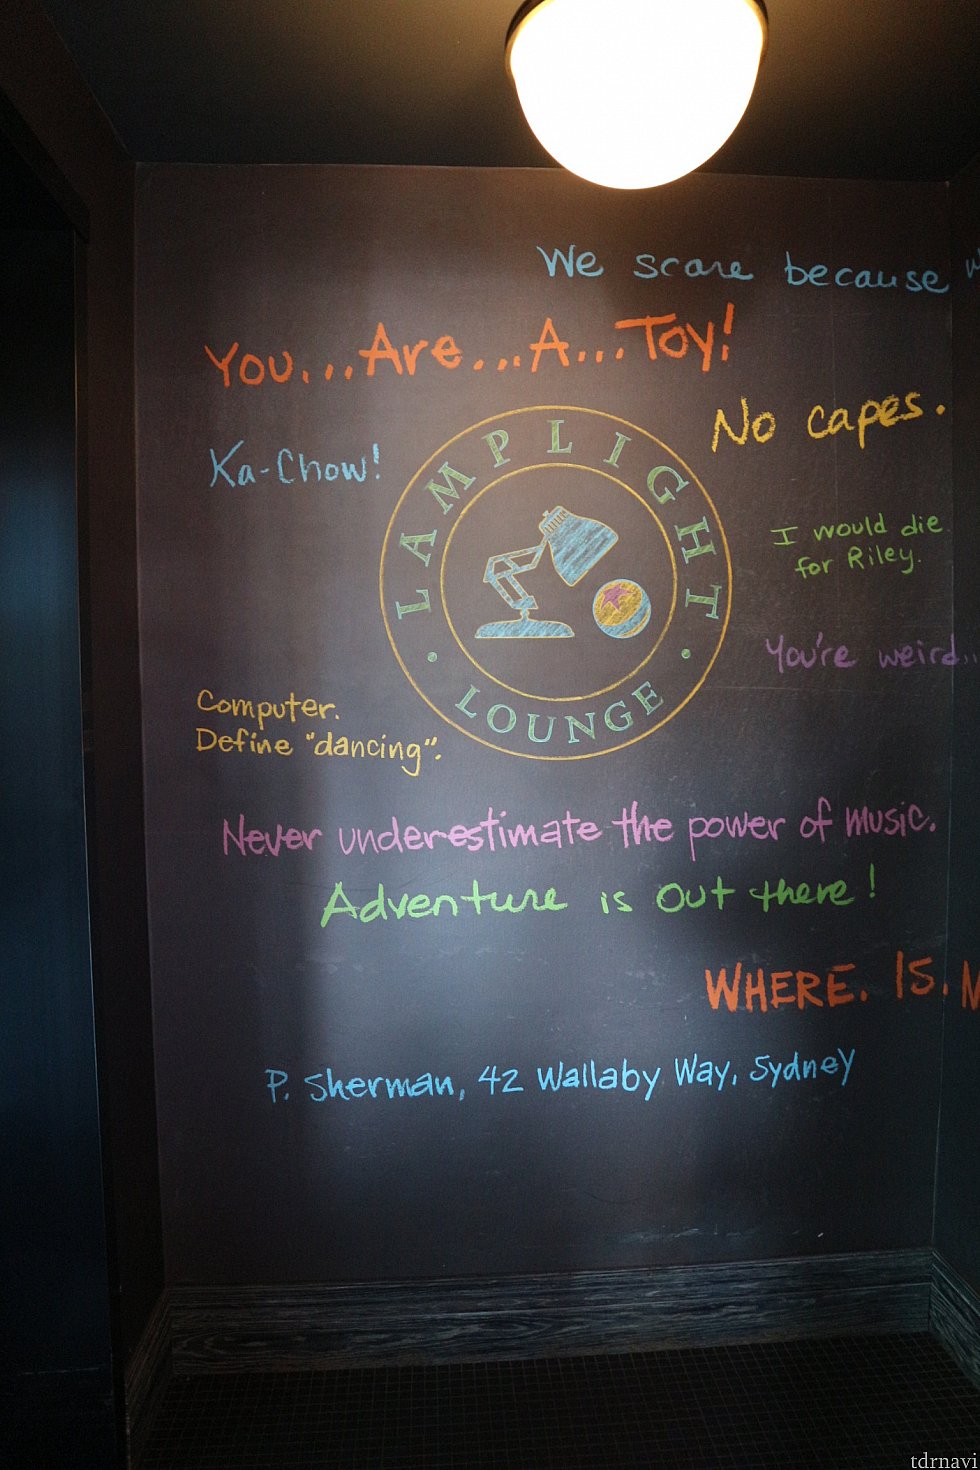 We scare because
You...Are...A...Toy!
No capes.
Ka-Chow!
LAMPLIGHT
LOUNGE
I would die
for Riley.
You're weird...
Computer.
Define "dancing".
Never underestimate the power of music.
Adventure is out there!
WHERE. IS.
P. Sherman, 42 Wallaby Way, Sydney
tdrnavi